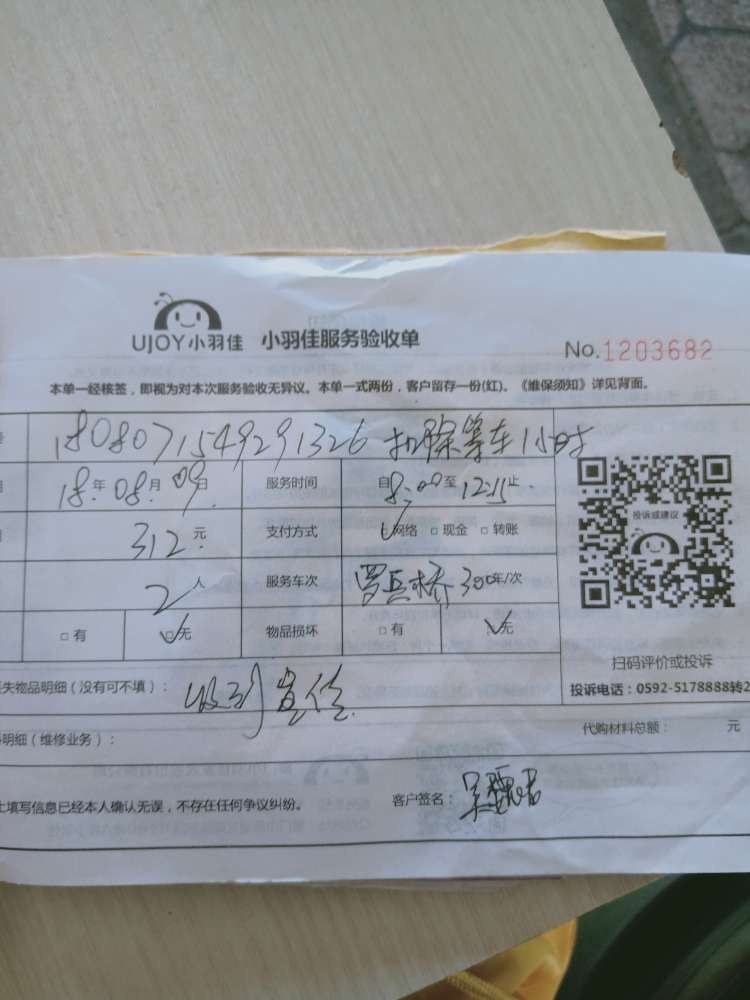 UJOY小羽佳 小羽佳服务验收单
No.1203682
本单一经核签，即视为对本次服务验收无异议。本单一式两份，客户留存一份(红)。《维保须知》详见背面。
1808071549291326 扣除等车1小时
18年08月09日 服务时间 自8:09至12:15止
312元 支付方式 网络 □现金 □转账
2人 服务车次 300年/次
□有 □无 物品损坏 □有 无
投诉或建议
扫码评价或投诉
投诉电话：0592-5178888转2
失物品明细（没有可不填）： 收到宣传
代购材料总额： 元
明细（维修业务）：
上填写信息已经本人确认无误，不存在任何争议纠纷。 客户签名：